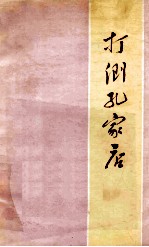 打倒孔家店